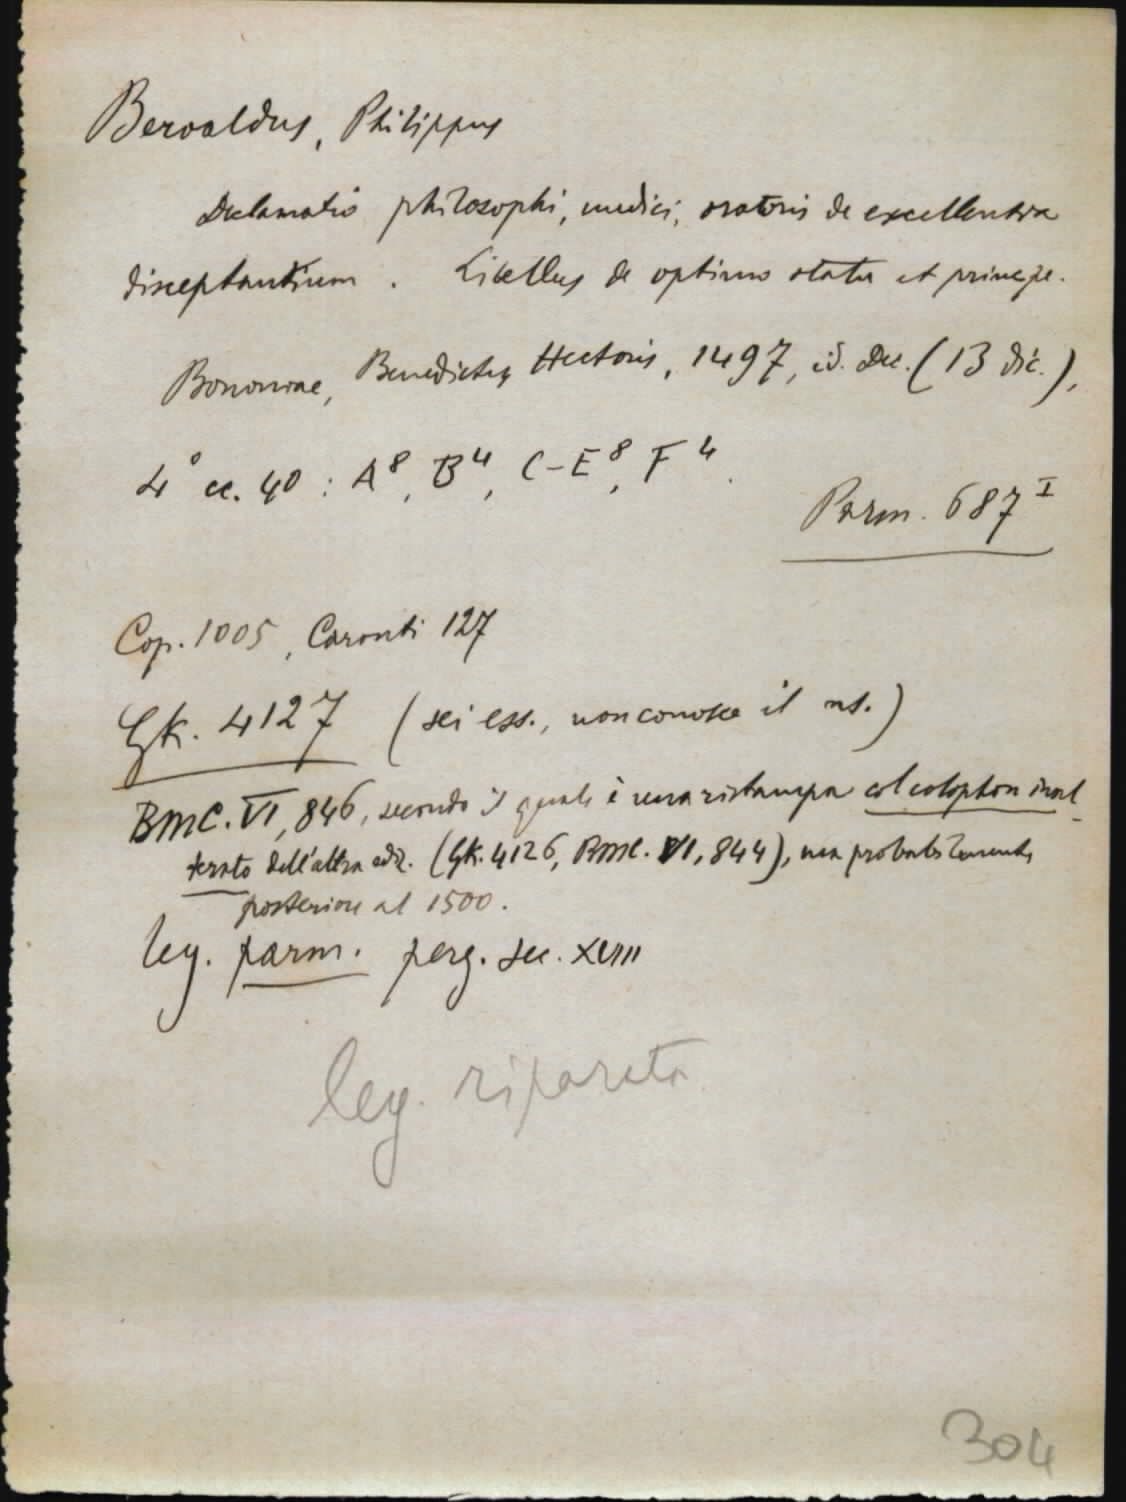 Beroaldus, Philippus
Declamatio philosophi, medici, oratoris de excellentia
disceptantium. Libellus de optimo statu et principe.
Bononiae, Benedictus Hectoris, 1497, id. Dec. (13 dic.),
4° cc. 40 : A⁸, B⁴, C-E⁸, F⁴.
Parm. 687ᴵ
Cop. 1005, Caronti 127
Gk. 4127 (sei ess., non conosce il ns.)
BMC. VI, 846, secondo il quale è una ristampa col colophon inal-
terato dell'altra ediz. (Gk. 4126, BMC. VI, 844), ma probabilmente
posteriore al 1500.
leg. parm. perg. sec. XVIII
leg. riparata
304